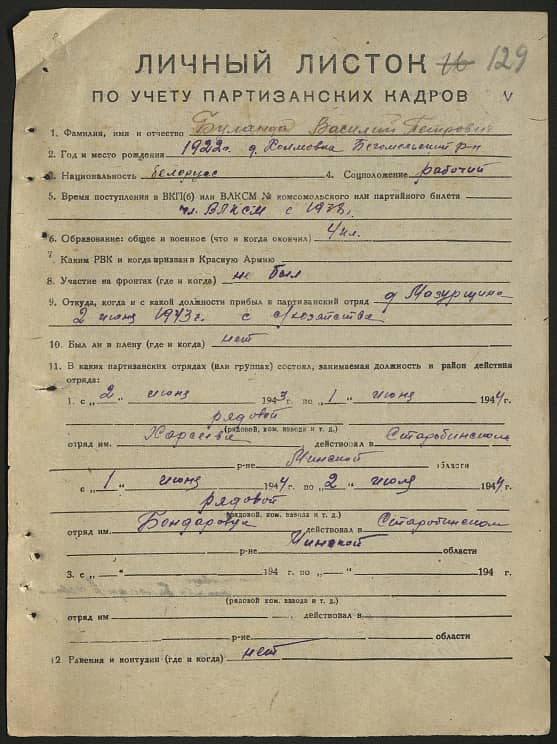 ЛИЧНЫЙ ЛИСТОК 16 129
ПО УЧЕТУ ПАРТИЗАНСКИХ КАДРОВ V
1. Фамилия, имя и отчество Буланда Василий Петрович
2. Год и место рождения 1922г. д. Холмовка Бегомельский р-н
3. Национальность белорус 4. Соцположение рабочий
5. Время поступления в ВКП(б) или ВЛКСМ № комсомольского или партийного билета
чл. ВЛКСМ с 1938г.
6. Образование: общее и военное (что и когда окончил) 4 кл.
7. Каким РВК и когда призван в Красную Армию
8. Участие на фронтах (где и когда) не был
9. Откуда, когда и с какой должности прибыл в партизанский отряд д Мазурщина
2 июня 1943г. с с/хозяйства
10. Был ли в плену (где и когда) нет
11. В каких партизанских отрядах (или группах) состоял, занимаемая должность и район действия
отряда:
1. с „ 2 " июня 1943г. по „ 1 " июня 1944г.
рядовой
(рядовой, ком. взвода и т. д.)
отряд им. действовал в Старобинском
р-не Минской области
с „ 1 " июня 1944 г. по „ 2 " июля 1944г.
рядовой
(рядовой, ком. взвода и т. д.)
отряд им. действовал в Старобинском
р-не Минской области
3. с „ " 194 г. по „ " 194 г.
(рядовой, ком. взвода и т. д.)
отряд им. действовал в
р-не области
12 Ранения и контузии (где и когда) нет